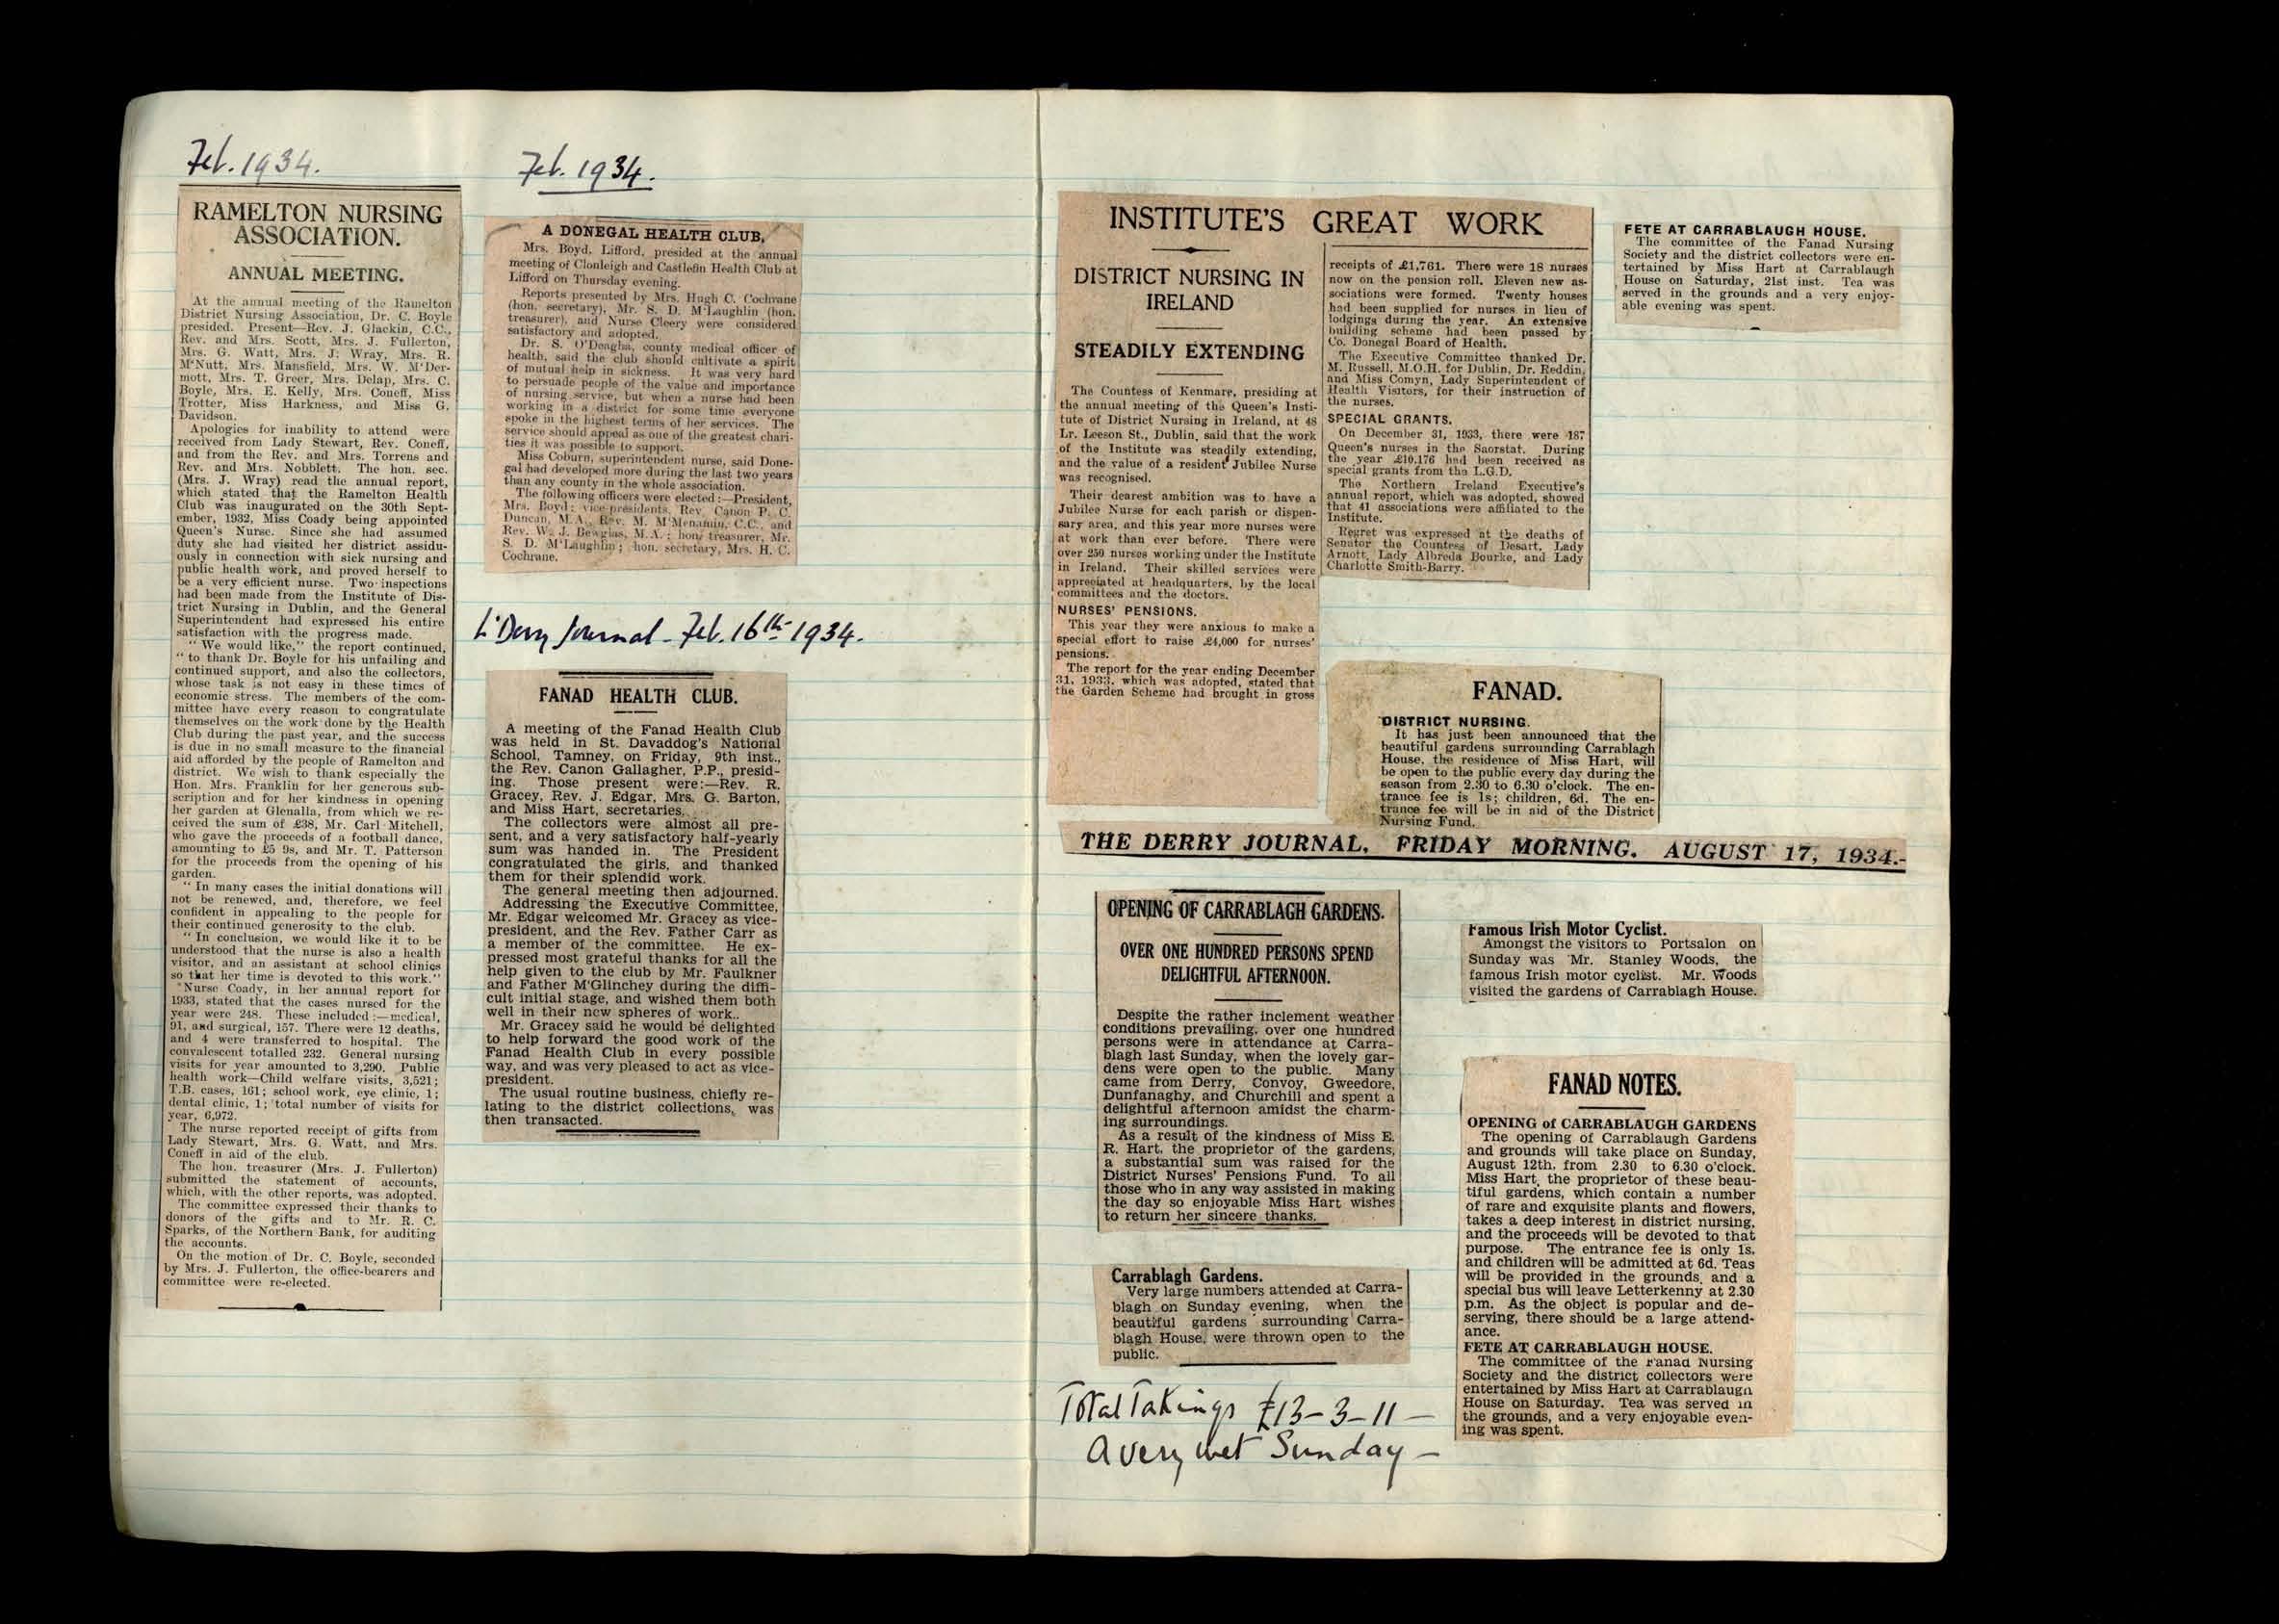 Feb. 1934.
RAMELTON NURSING
ASSOCIATION.
ANNUAL MEETING.
At the annual meeting of the Ramelton
District Nursing Association, Dr. C. Boyle
presided. Present—Rev. J. Glackin, C.C.,
Rev. and Mrs. Scott, Mrs. J. Fullerton,
Mrs. G. Watt, Mrs. J. Wray, Mrs. R.
M'Nutt, Mrs. Mansfield, Mrs. W. M'Der-
mott, Mrs. T. Greer, Mrs. Delap, Mrs. C.
Boyle, Mrs. E. Kelly, Mrs. Coneff, Miss
Trotter, Miss Harkness, and Miss G.
Davidson.
Apologies for inability to attend were
received from Lady Stewart, Rev. Coneff,
and from the Rev. and Mrs. Torrens and
Rev. and Mrs. Nobblett. The hon. sec.
(Mrs. J. Wray) read the annual report,
which stated that the Ramelton Health
Club was inaugurated on the 30th Sept-
ember, 1932, Miss Coady being appointed
Queen's Nurse. Since she had assumed
duty she had visited her district assidu-
ously in connection with sick nursing and
public health work, and proved herself to
be a very efficient nurse. Two inspections
had been made from the Institute of Dis-
trict Nursing in Dublin, and the General
Superintendent had expressed his entire
satisfaction with the progress made.
"We would like," the report continued,
"to thank Dr. Boyle for his unfailing and
continued support, and also the collectors,
whose task is not easy in these times of
economic stress. The members of the com-
mittee have every reason to congratulate
themselves on the work done by the Health
Club during the past year, and the success
is due in no small measure to the financial
aid afforded by the people of Ramelton and
district. We wish to thank especially the
Hon. Mrs. Franklin for her generous sub-
scription and for her kindness in opening
her garden at Glenalla, from which we re-
ceived the sum of £38, Mr. Carl Mitchell,
who gave the proceeds of a football dance,
amounting to £5 9s, and Mr. T. Patterson
for the proceeds from the opening of his
garden.
"In many cases the initial donations will
not be renewed, and, therefore, we feel
confident in appealing to the people for
their continued generosity to the club.
"In conclusion, we would like it to be
understood that the nurse is also a health
visitor, and an assistant at school clinics
so that her time is devoted to this work."
Nurse Coady, in her annual report for
1933, stated that the cases nursed for the
year were 248. These included:—medical,
91, and surgical, 157. There were 12 deaths,
and 4 were transferred to hospital. The
convalescent totalled 232. General nursing
visits for year amounted to 3,290. Public
health work—Child welfare visits, 3,521;
T.B. cases, 161; school work, eye clinic, 1;
dental clinic, 1; total number of visits for
year, 6,972.
The nurse reported receipt of gifts from
Lady Stewart, Mrs. G. Watt, and Mrs.
Coneff in aid of the club.
The hon. treasurer (Mrs. J. Fullerton)
submitted the statement of accounts,
which, with the other reports, was adopted.
The committee expressed their thanks to
donors of the gifts and to Mr. R. C.
Sparks, of the Northern Bank, for auditing
the accounts.
On the motion of Dr. C. Boyle, seconded
by Mrs. J. Fullerton, the office-bearers and
committee were re-elected.
Feb. 1934.
A DONEGAL HEALTH CLUB.
Mrs. Boyd, Lifford, presided at the annual
meeting of Clonleigh and Castlefin Health Club at
Lifford on Thursday evening.
Reports presented by Mrs. Hugh C. Cochrane
(hon. secretary), Mr. S. D. M'Laughlin (hon.
treasurer), and Nurse Cleery were considered
satisfactory and adopted.
Dr. S. O'Deagha, county medical officer of
health, said the club should cultivate a spirit
of mutual help in sickness. It was very hard
to persuade people of the value and importance
of nursing service, but when a nurse had been
working in a district for some time everyone
spoke in the highest terms of her services. The
service should appeal as one of the greatest chari-
ties it was possible to support.
Miss Coburn, superintendent nurse, said Done-
gal had developed more during the last two years
than any county in the whole association.
The following officers were elected:—President,
Mrs. Boyd; vice-presidents, Rev. Canon P. C.
Duncan, M.A., Rev. M. M'Menamin, C.C., and
Rev. W. J. Bewglas, M.A.; hon. treasurer, Mr.
S. D. M'Laughlin; hon. secretary, Mrs. H. C.
Cochrane.
L'Derry Journal - Feb. 16th 1934.
FANAD HEALTH CLUB.
A meeting of the Fanad Health Club
was held in St. Davaddog's National
School, Tamney, on Friday, 9th inst.,
the Rev. Canon Gallagher, P.P., presid-
ing. Those present were:—Rev. R.
Gracey, Rev. J. Edgar, Mrs. G. Barton,
and Miss Hart, secretaries.
The collectors were almost all pre-
sent, and a very satisfactory half-yearly
sum was handed in. The President
congratulated the girls, and thanked
them for their splendid work.
The general meeting then adjourned.
Addressing the Executive Committee,
Mr. Edgar welcomed Mr. Gracey as vice-
president, and the Rev. Father Carr as
a member of the committee. He ex-
pressed most grateful thanks for all the
help given to the club by Mr. Faulkner
and Father M'Glinchey during the diffi-
cult initial stage, and wished them both
well in their new spheres of work..
Mr. Gracey said he would be delighted
to help forward the good work of the
Fanad Health Club in every possible
way, and was very pleased to act as vice-
president.
The usual routine business, chiefly re-
lating to the district collections, was
then transacted.
INSTITUTE'S GREAT WORK
DISTRICT NURSING IN
IRELAND
STEADILY EXTENDING
The Countess of Kenmare, presiding at
the annual meeting of the Queen's Insti-
tute of District Nursing in Ireland, at 48
Lr. Leeson St., Dublin, said that the work
of the Institute was steadily extending,
and the value of a resident Jubilee Nurse
was recognised.
Their dearest ambition was to have a
Jubilee Nurse for each parish or dispen-
sary area, and this year more nurses were
at work than ever before. There were
over 250 nurses working under the Institute
in Ireland. Their skilled services were
appreciated at headquarters, by the local
committees and the doctors.
NURSES' PENSIONS.
This year they were anxious to make a
special effort to raise £4,000 for nurses'
pensions.
The report for the year ending December
31, 1933, which was adopted, stated that
the Garden Scheme had brought in gross
receipts of £1,761. There were 18 nurses
now on the pension roll. Eleven new as-
sociations were formed. Twenty houses
had been supplied for nurses in lieu of
lodgings during the year. An extensive
building scheme had been passed by
Co. Donegal Board of Health.
The Executive Committee thanked Dr.
M. Russell, M.O.H. for Dublin, Dr. Reddin,
and Miss Comyn, Lady Superintendent of
Health Visitors, for their instruction of
the nurses.
SPECIAL GRANTS.
On December 31, 1933, there were 187
Queen's nurses in the Saorstat. During
the year £10,176 had been received as
special grants from the L.G.D.
The Northern Ireland Executive's
annual report, which was adopted, showed
that 41 associations were affiliated to the
Institute.
Regret was expressed at the deaths of
Senator the Countess of Desart, Lady
Arnott, Lady Albreda Bourke, and Lady
Charlotte Smith-Barry.
FETE AT CARRABLAUGH HOUSE.
The committee of the Fanad Nursing
Society and the district collectors were en-
tertained by Miss Hart at Carrablaugh
House on Saturday, 21st inst. Tea was
served in the grounds and a very enjoy-
able evening was spent.
FANAD.
DISTRICT NURSING.
It has just been announced that the
beautiful gardens surrounding Carrablagh
House, the residence of Miss Hart, will
be open to the public every day during the
season from 2.30 to 6.30 o'clock. The en-
trance fee is 1s; children, 6d. The en-
trance fee will be in aid of the District
Nursing Fund.
THE DERRY JOURNAL, FRIDAY MORNING, AUGUST 17, 1934.-
OPENING OF CARRABLAGH GARDENS.
OVER ONE HUNDRED PERSONS SPEND
DELIGHTFUL AFTERNOON.
Despite the rather inclement weather
conditions prevailing, over one hundred
persons were in attendance at Carra-
blagh last Sunday, when the lovely gar-
dens were open to the public. Many
came from Derry, Convoy, Gweedore,
Dunfanaghy, and Churchill and spent a
delightful afternoon amidst the charm-
ing surroundings.
As a result of the kindness of Miss E.
R. Hart, the proprietor of the gardens,
a substantial sum was raised for the
District Nurses' Pensions Fund. To all
those who in any way assisted in making
the day so enjoyable Miss Hart wishes
to return her sincere thanks.
Carrablagh Gardens.
Very large numbers attended at Carra-
blagh on Sunday evening, when the
beautiful gardens surrounding Carra-
blagh House, were thrown open to the
public.
Total Takings £13-3-11 —
A very wet Sunday —
Famous Irish Motor Cyclist.
Amongst the visitors to Portsalon on
Sunday was Mr. Stanley Woods, the
famous Irish motor cyclist. Mr. Woods
visited the gardens of Carrablagh House.
FANAD NOTES.
OPENING of CARRABLAUGH GARDENS
The opening of Carrablaugh Gardens
and grounds will take place on Sunday,
August 12th, from 2.30 to 6.30 o'clock.
Miss Hart, the proprietor of these beau-
tiful gardens, which contain a number
of rare and exquisite plants and flowers,
takes a deep interest in district nursing,
and the proceeds will be devoted to that
purpose. The entrance fee is only 1s,
and children will be admitted at 6d. Teas
will be provided in the grounds, and a
special bus will leave Letterkenny at 2.30
p.m. As the object is popular and de-
serving, there should be a large attend-
ance.
FETE AT CARRABLAUGH HOUSE.
The committee of the Fanad Nursing
Society and the district collectors were
entertained by Miss Hart at Carrablaugh
House on Saturday. Tea was served in
the grounds, and a very enjoyable even-
ing was spent.